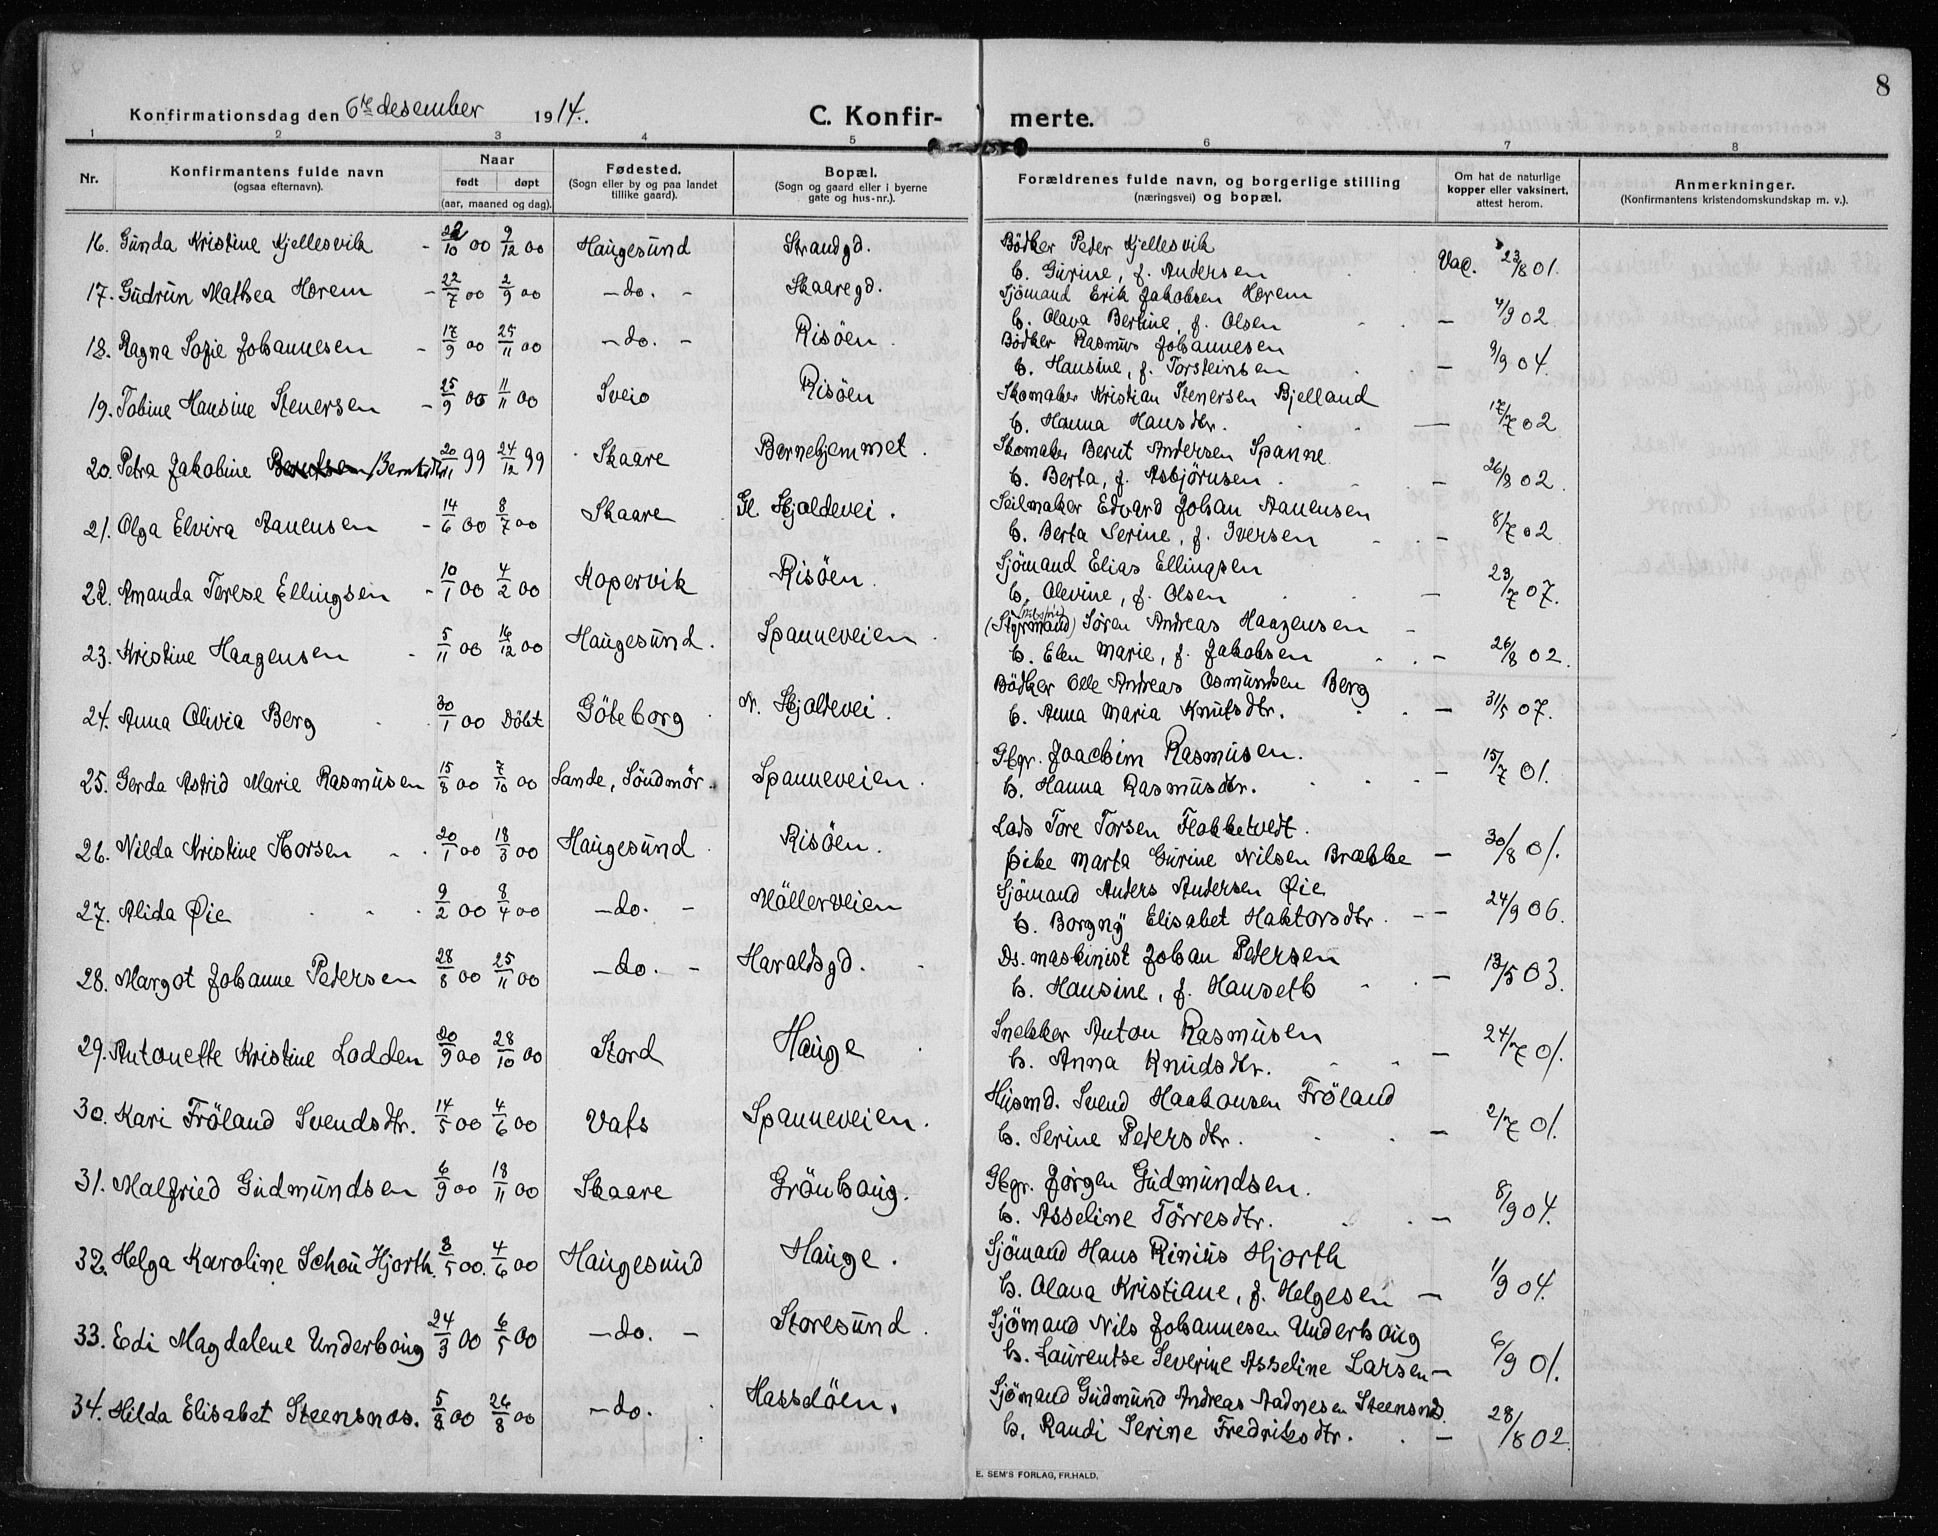 8
Konfirmationsdag den 6te desember 1914.
C. Konfirmerte.
1 2 3 4 5 6 7 8
Nr.
Konfirmantens fulde navn
(ogsaa efternavn).
Naar
født døpt
(aar, maaned og dag).
Fødested.
(Sogn eller by og paa landet
tillike gaard).
Bopæl.
(Sogn og gaard eller i byerne
gate og hus-nr.).
Forældrenes fulde navn, og borgerlige stilling
(næringsvei) og bopæl.
Om hat de naturlige
kopper eller vaksinert,
attest herom.
Anmerkninger.
(Konfirmantens kristendomskundskap m. v.).
16. Gunda Kristine Kjellesvik - 22/10 00 9/12 00 Haugesund Strandgd. Bödker Peder Kjellesvik
h. Gurine, f. Andersen Vac. 23/8 01.
17. Gudrun Mathea Horem - 22/7 00 2/9 00 -do. - Skaaregd. Sjömand Erik Jakobsen Horem
h. Olava Bertine, f. Olsen - 4/9 02
18. Ragna Sofie Johannesen - 17/9 00 25/11 00 -do. - Risöen. Bödker Rasmus Johannesen
h. Hansine, f. Torsteinsen - 9/9 04.
19. Tobine Hansine Stenersen - 25/9 00 11/11 00 Sveio Risöen Skomaker Kristian Stenersen Bjelland
h. Hanna Hansdtr. - 17/7 02
20. Petra Jakobine Berntsen /Berntsdtr. 20/11 99 24/12 99 Skaare Bornehjemmet. Skomaker Bernt Andersen Spanne
h. Berta, f. Asbjörnsen. - 26/8 02.
21. Olga Elvira Aanensen - 14/6 00 8/7 00 Skaare Gl. Skjoldevei. Seilmaker Edvard Johan Aanensen
h. Berta Serine, f. Iversen - 8/7 02
22. Amanda Terese Ellingsen - 10/1 00 4/2 00 Kopervik Risöen. Sjömand Elias Ellingsen
h. Olevine, f. Olsen - 23/7 07.
23. Kristine Haagensen 5/11 00 16/12 00 Haugesund. Spanneveien. (Styrmand) Sören Andreas Haagensen -
h. Elen Marie, f. Jakobsen - 26/8 02.
24. Anna Olivia Berg 30/1 00 Döbt Göteborg N. Skjoldevei. Bödker Olle Andreas Osmundsen Berg
h. Anna Maria Knutsdtr. - 31/5 07.
25. Gerda Astrid Marie Rasmusen 15/8 00 7/10 00 Sande, Söndmör. Spanneveien. Gbgr. Joachim Rasmusen.
h. Hanna Rasmusdtr. - 15/7 01.
26. Nilda Kristine Thorsen 20/1 00 18/3 00 Haugesund Risöen. Lods Tore Torsen Flokketvedt.
pike Marta Gurine Nilsen Brække - 30/8 01.
27. Alida Øie 9/2 00 8/4 00 -do. - Möllerveien Sjömand Anders Andersen Øie
h. Borgny Elisabet Haktorsdtr. - - 24/9 06.
28. Margot Johanne Petersen 28/8 00 25/11 00 -do. - Haraldsgd. Ds. maskinist Johan Petersen
h. Hansine, f. Hanseth - 13/5 03.
29. Antonette Kristine Lodden 20/9 00 28/10 00 Stord Hauge Snekker Anton Rasmusen
h. Anna Knudsdtr. - 24/7 01.
30. Kari Fröland Svendsdtr. 14/5 00 4/6 00 Vats Spanneveien. Husmd. Svend Haakonsen Fröland
h. Serine Pedersdtr. - 2/7 01.
31. Malfried Gudmundsen 6/9 00 18/11 00 Skaare Grönhaug. Gbgr. Jørgen Gudmundsen.
h. Asseline Törresdtr. - 8/9 04.
32. Helga Karoline Schou Hjorth. 8/5 00. 4/6 00 Haugesund Hauge. Sjömand Hans Rinius Hjorth
h. Olava Kristiane, f. Helgesen - 1/9 04.
33. Edi Magdalene Underhaug 24/3 00 6/5 00 -do. - Storesund. Sjömand Nils Johannesen Underhaug
h. Laurentse Severine Asseline Larsen - 6/9 01.
34. Hilda Elisabet Steensnæs. 5/8 00 26/8 00 -do. Hasselöen. Sjömand Gudmund Andreas Aadnesen Steensnæs.
h. Randi Serine Fredriksdtr. - 28/8 02.
E. SEM'S FORLAG, FR.HALD.